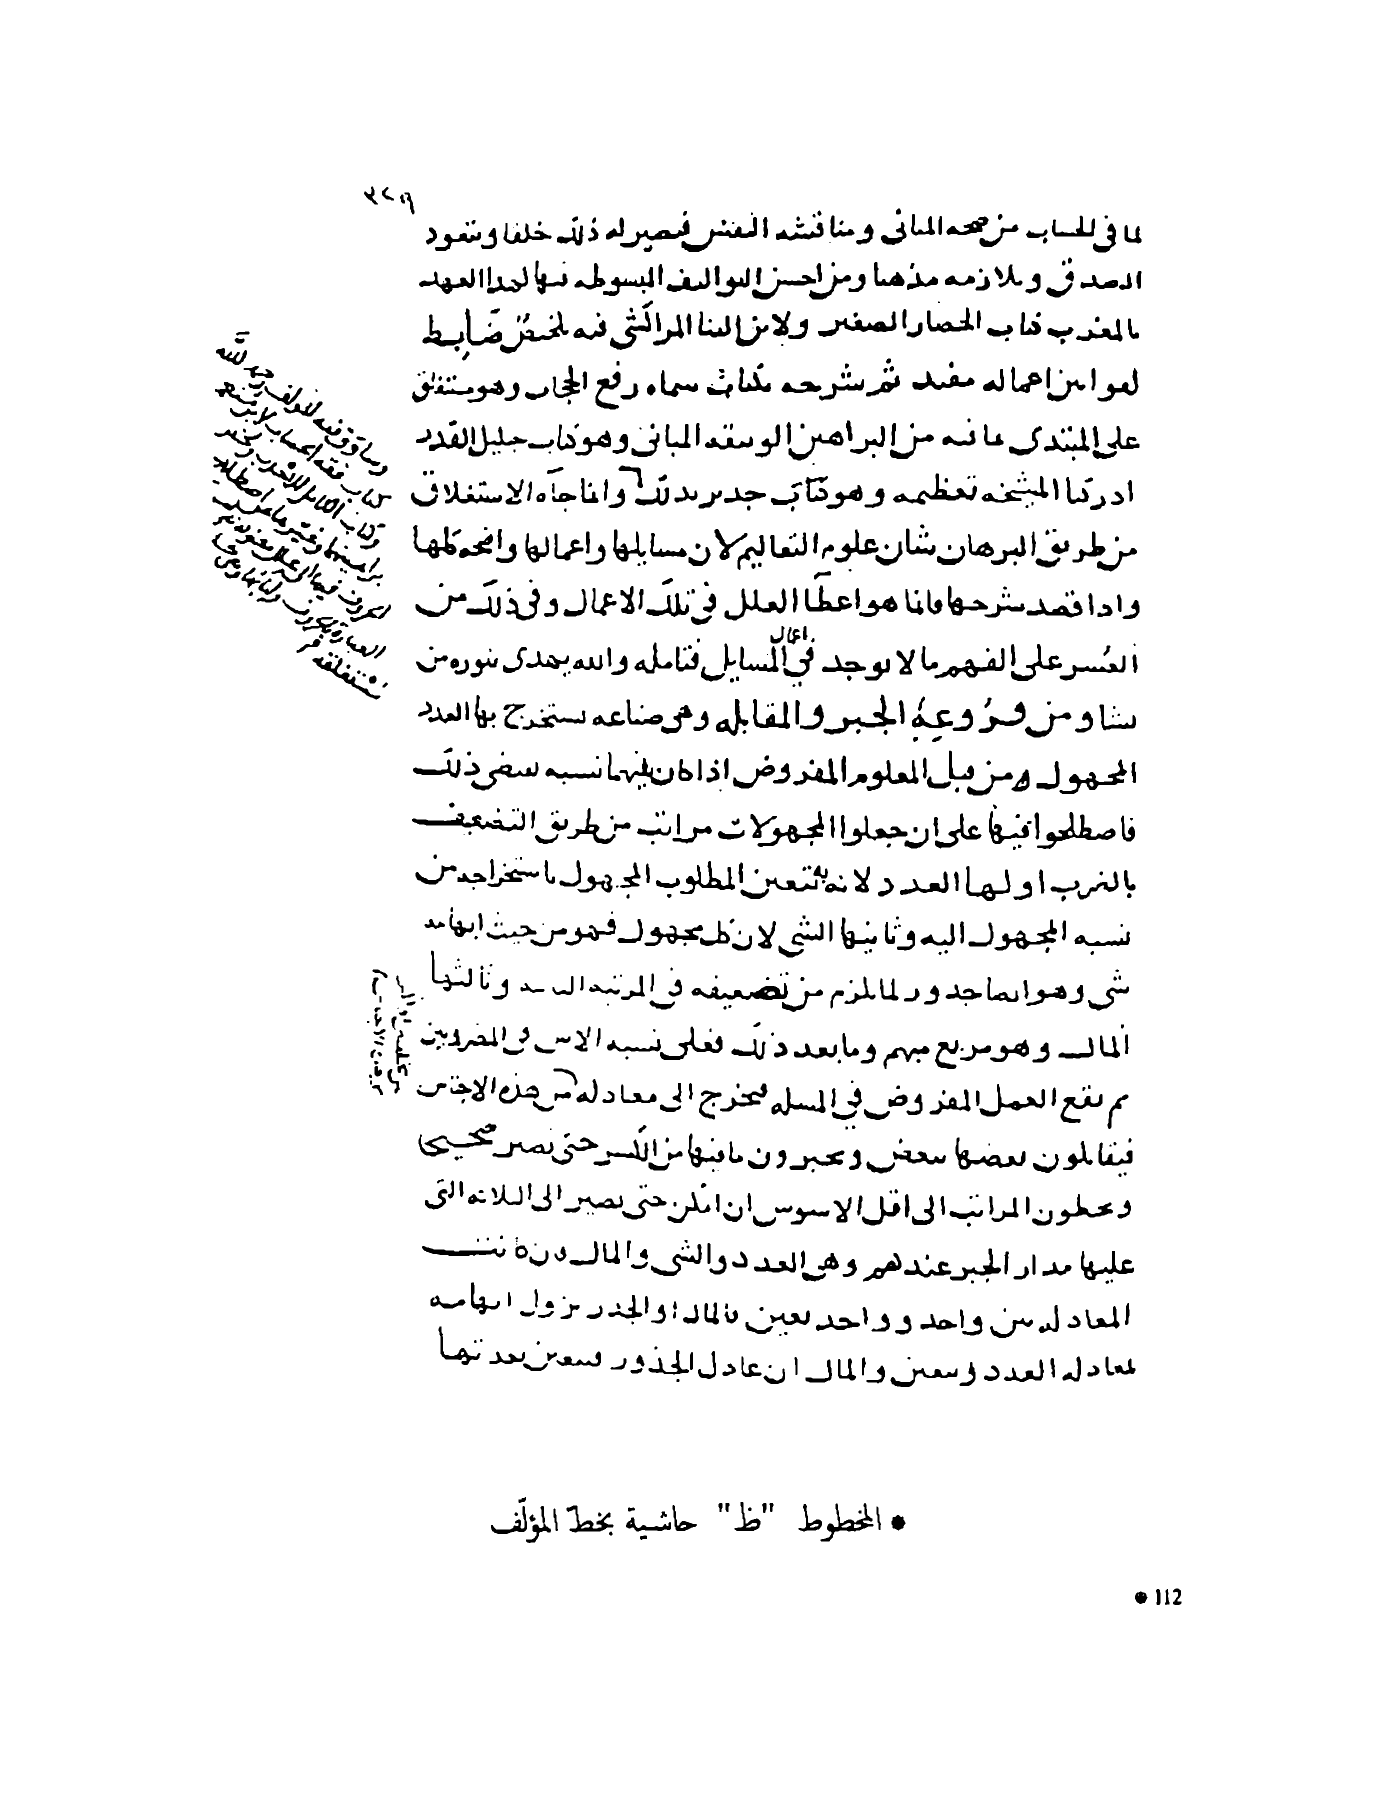 لما في الحساب من صحه المبانى ومناقشه النفس فيصير له ذلك خلقا ويتعود
الصدق ويلازمه مذهبا ومن احسن التواليف المبسوطه فيها لهذا العهد
بالمغرب كتاب الحصار الصغير ولابن البنا المراكشى فيه تلخيص ضابط
لقوانين اعماله مفيد ثم شرحه بكتاب سماه رفع الحجاب وهو مستغلق
على المبتدى بما فيه من البراهين الوسقه المبانى وهو كتاب جليل القدر
ادركنا المشيخه تعظمه وهو كتاب جدير بذلك وانما جاه الاستغلاق
من طريق البرهان شان علوم التعاليم لان مسايلها واعمالها واضحه كلها
واذا قصد شرحها فانما هو اعطا العلل في تلك الاعمال وفي ذلك من
العسر على الفهم ما لا يوجد في اعمال المسايل فتامله والله يهدى بنوره من
يشا ومن فروعه الجبر والمقابله وهى صناعه يستخرج بها العدد
المجهول من قبل المعلوم المفروض اذا كان بينهما نسبه تقتضى ذلك
فاصطلحوا فيها على ان جعلوا المجهولات مراتب من طريق التضعيف
بالضرب اولها العدد لانه به يتعين المطلوب المجهول باستخراجه من
نسبه المجهول اليه وثانيها الشى لان كل مجهول فهو من حيث ابهامه
شى وهو ايضا جذر لما يلزم من تضعيفه في المرتبه الثانيه وثالثها
المال وهو مربع مبهم وما بعد ذلك فعلى نسبه الاس في المضروبين
ثم يقع العمل المفروض في المسله فيخرج الى معادله من هذه الاجناس
فيقابلون بعضها ببعض ويجبرون ما فيها من الكسر حتى يصير صحيحا
ويحطون المراتب الى اقل الاسوس ان امكن حتى يصير الى الثلاثه التى
عليها مدار الجبر عندهم وهى العدد والشى والمال فان كانت
المعادله بين واحد وواحد تعين فالمال او الجذر يزول ابهامه
بمعادله العدد ويتعين والمال ان عادل الجذور فيتعين بعدتها
وساوق فيه المولف رحمه الله
كتاب فقه الحساب لابن منعم
وكتاب الكامل للاحدب ولخص
براهينهما وغيرها عن اصطلاح
الحروف فيها الى علل معنويه
● المخطوط "ظ" حاشية بخط المؤلّف
● 112